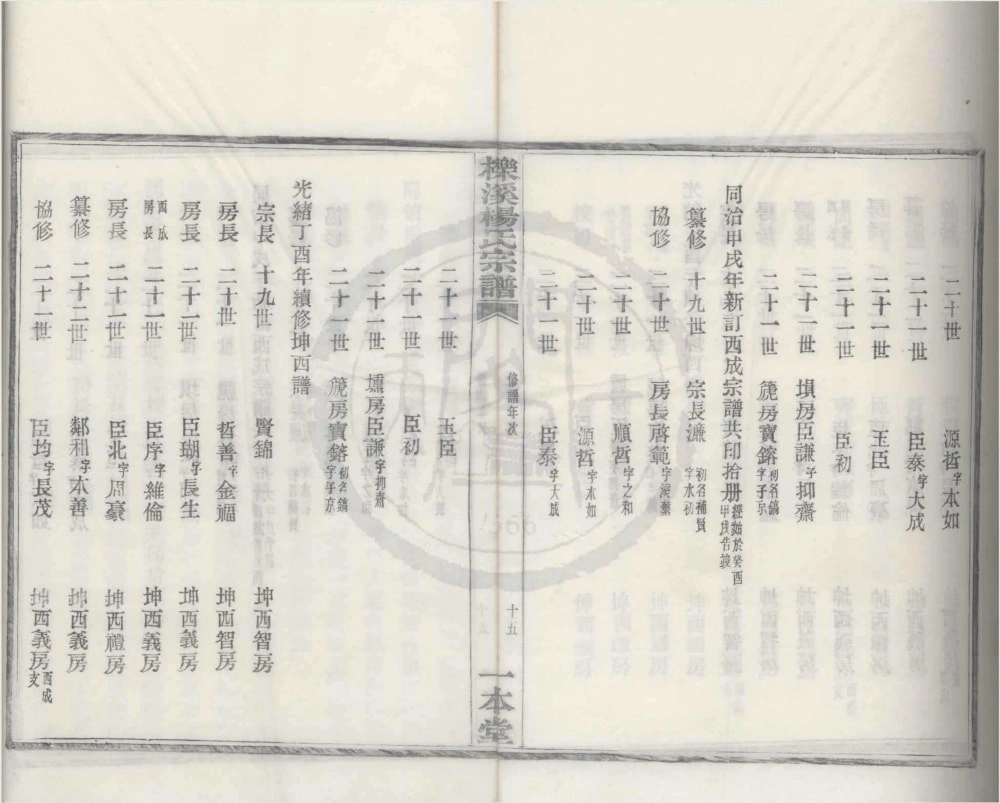 二十世 源哲字本如
二十一世 臣泰字大成
二十一世 玉臣
二十一世 臣初
二十一世 塤房臣謙字抑齋
二十一世 篪房寶鎔初名鎬字子京
同治甲戌年新訂西成宗譜共印拾册經始於癸酉甲戌告竣
纂修 十九世 宗長濂初名補賢字水初
協修 二十世 房長啓範字漢藜
二十世 順哲字之和
二十世 源哲字本如
二十一世 臣泰字大成
櫟溪楊氏宗譜 修譜年次 十五 一本堂
二十一世 玉臣
二十一世 臣初
二十一世 壎房臣謙字抑齋
二十一世 篪房寶鎔初名鎬字子京
光緒丁酉年續修坤西譜
宗長 十九世 賢錦 坤西智房
房長 二十世 哲善字金福 坤西智房
房長 二十一世 臣瑚字長生 坤西義房
西成房長 二十一世 臣序字維倫 坤西義房
房長 二十一世 臣北字周豪 坤西禮房
纂修 二十二世 鄰和字本善 坤西義房
協修 二十一世 臣均字長茂 坤西義房西成支